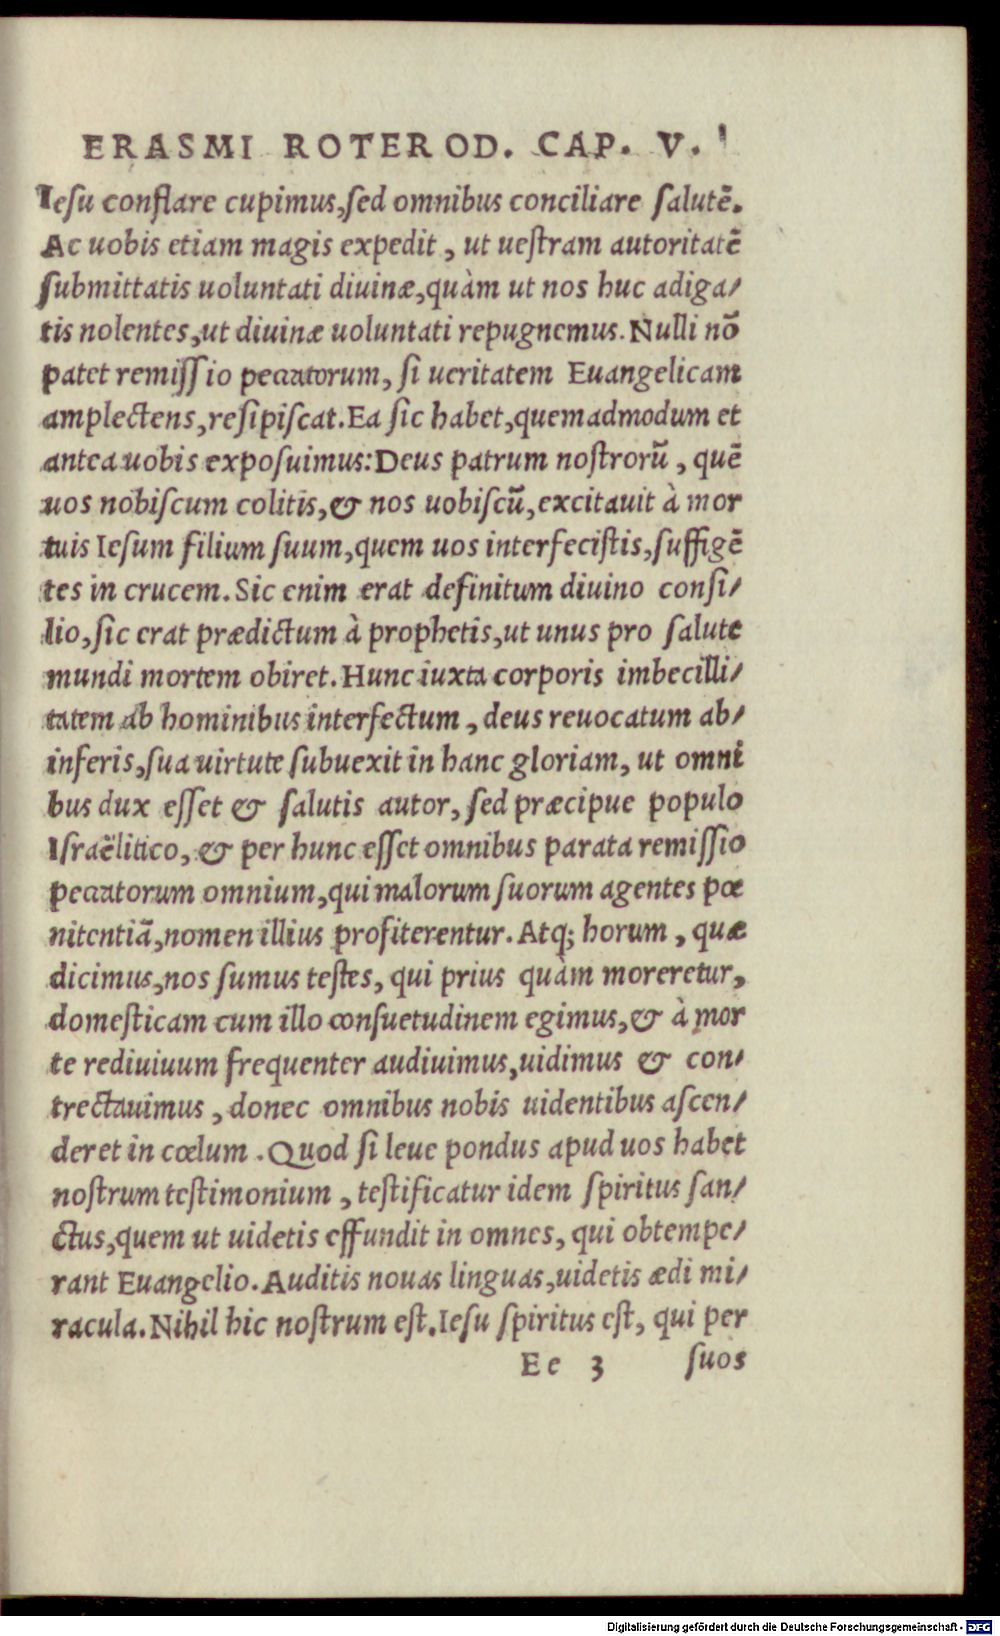 ERASMI ROTEROD. CAP. V.
Iesu conflare cupimus,ſed omnibus conciliare ſalutē.
Ac uobis etiam magis expedit, ut ueſtram autoritatē
ſubmittatis uoluntati diuinæ,quàm ut nos huc adiga/
tis nolentes,ut diuinæ uoluntati repugnemus. Nulli nō
patet remiſſio peccatorum, ſi ueritatem Euangelicam
amplectens,reſipiſcat. Ea ſic habet,quemadmodum et
antea uobis expoſuimus: Deus patrum noſtrorū, quē
uos nobiſcum colitis,& nos uobiſcū,excitauit à mor
tuis Ieſum filium ſuum,quem uos interfeciſtis,ſuffigē
tes in crucem. Sic enim erat definitum diuino conſi/
lio,ſic erat prædictum à prophetis,ut unus pro ſalute
mundi mortem obiret. Hunc iuxta corporis imbecilli/
tatem ab hominibus interfectum, deus reuocatum ab/
inferis,ſua uirtute ſubuexit in hanc gloriam, ut omni
bus dux eſſet & ſalutis autor, ſed præcipue populo
Iſraëlitico, & per hunc eſſet omnibus parata remiſſio
peccatorum omnium,qui malorum ſuorum agentes pœ
nitentiā,nomen illius profiterentur. Atq; horum, quæ
dicimus,nos ſumus teſtes, qui prius quàm moreretur,
domeſticam cum illo conſuetudinem egimus,& à mor
te rediuiuum frequenter audiuimus,uidimus & con/
trectauimus, donec omnibus nobis uidentibus aſcen/
deret in cœlum. Quod ſi leue pondus apud uos habet
noſtrum teſtimonium, teſtificatur idem ſpiritus ſan/
ctus,quem ut uidetis effundit in omnes, qui obtempe/
rant Euangelio. Auditis nouas linguas,uidetis ædi mi/
racula. Nihil hic noſtrum eſt. Ieſu ſpiritus eſt, qui per
Ee 3 ſuos
Digitalisierung gefördert durch die Deutsche Forschungsgemeinschaft - DFG